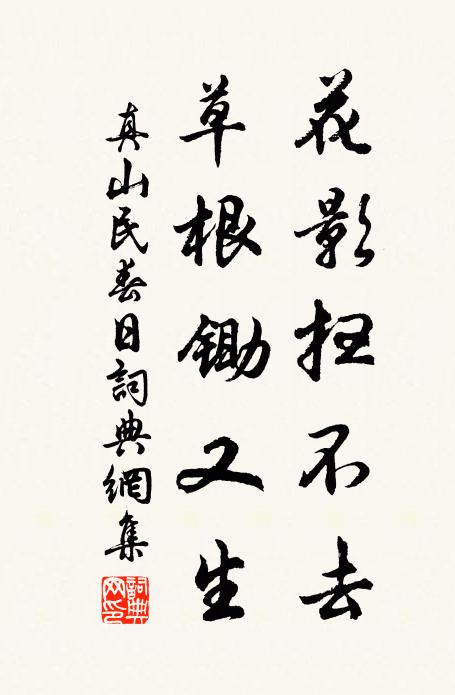 花影不去
草根鋤又生
真山民春日詞典網集
詞典
网印